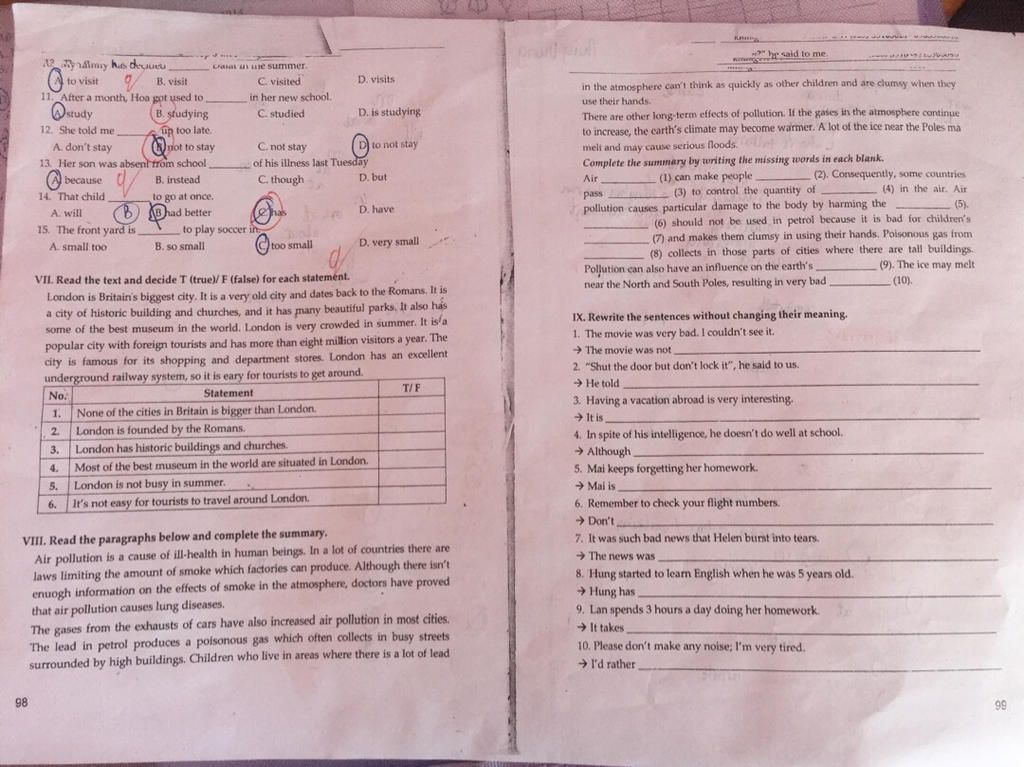 My family has decided ______ in the summer.
A. to visit B. visit C. visited D. visits
11. After a month, Hoa got used to ______ in her new school.
A. study B. studying C. studied D. is studying
12. She told me ______ up too late.
A. don't stay B. not to stay C. not stay D. to not stay
13. Her son was absent from school ______ of his illness last Tuesday
A. because B. instead C. though D. but
14. That child ______ to go at once.
A. will B B. had better C. has D. have
15. The front yard is ______ to play soccer in.
A. small too B. so small C. too small D. very small
VII. Read the text and decide T (true)/ F (false) for each statement.
London is Britain's biggest city. It is a very old city and dates back to the Romans. It is
a city of historic building and churches, and it has many beautiful parks. It also has
some of the best museum in the world. London is very crowded in summer. It is a
popular city with foreign tourists and has more than eight million visitors a year. The
city is famous for its shopping and department stores. London has an excellent
underground railway system, so it is eary for tourists to get around.
No. Statement T/ F
1. None of the cities in Britain is bigger than London.
2. London is founded by the Romans.
3. London has historic buildings and churches.
4. Most of the best museum in the world are situated in London.
5. London is not busy in summer.
6. It's not easy for tourists to travel around London.
VIII. Read the paragraphs below and complete the summary.
Air pollution is a cause of ill-health in human beings. In a lot of countries there are
laws limiting the amount of smoke which factories can produce. Although there isn't
enuogh information on the effects of smoke in the atmosphere, doctors have proved
that air pollution causes lung diseases.
The gases from the exhausts of cars have also increased air pollution in most cities.
The lead in petrol produces a poisonous gas which often collects in busy streets
surrounded by high buildings. Children who live in areas where there is a lot of lead
98
he said to me.
in the atmosphere can't think as quickly as other children and are clumsy when they
use their hands.
There are other long-term effects of pollution. If the gases in the atmosphere continue
to increase, the earth's climate may become warmer. A lot of the ice near the Poles ma
melt and may cause serious floods.
Complete the summary by writing the missing words in each blank.
Air ______ (1) can make people ______ (2). Consequently, some countries
pass ______ (3) to control the quantity of ______ (4) in the air. Air
pollution causes particular damage to the body by harming the ______ (5).
______ (6) should not be used in petrol because it is bad for children's
______ (7) and makes them clumsy in using their hands. Poisonous gas from
______ (8) collects in those parts of cities where there are tall buildings.
Pollution can also have an influence on the earth's ______ (9). The ice may melt
near the North and South Poles, resulting in very bad ______ (10).
IX. Rewrite the sentences without changing their meaning.
1. The movie was very bad. I couldn't see it.
→ The movie was not ______
2. "Shut the door but don't lock it", he said to us.
→ He told ______
3. Having a vacation abroad is very interesting.
→ It is ______
4. In spite of his intelligence, he doesn't do well at school.
→ Although ______
5. Mai keeps forgetting her homework.
→ Mai is ______
6. Remember to check your flight numbers.
→ Don't ______
7. It was such bad news that Helen burst into tears.
→ The news was ______
8. Hung started to learn English when he was 5 years old.
→ Hung has ______
9. Lan spends 3 hours a day doing her homework.
→ It takes ______
10. Please don't make any noise; I'm very tired.
→ I'd rather ______
99